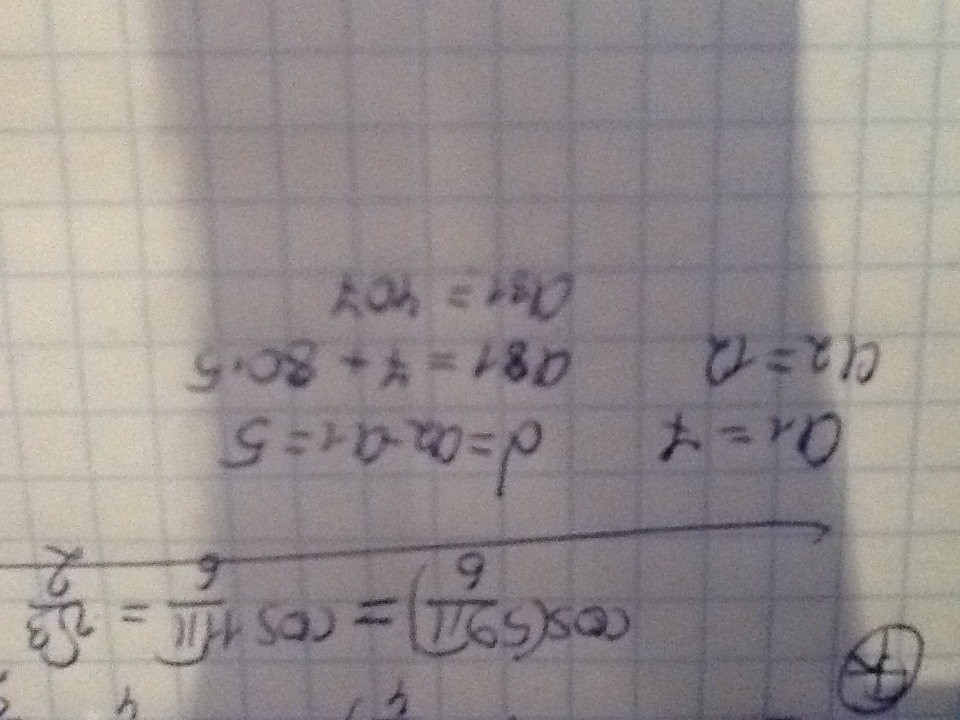 cos(59π/6) = cos 11π/6 = √3/2
a1 = 7 d = a2 - a1 = 5
a2 = 12 a81 = 7 + 80·5
a81 = 407